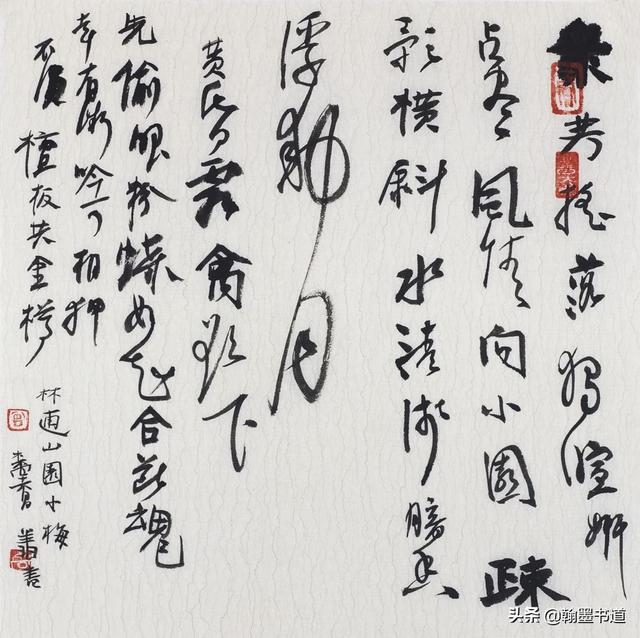 衆芳搖落獨暄妍
占盡風情向小園疎
影横斜水清淺暗香
浮動月
黄昏霜禽欲下
先偷眼粉蝶如知合斷魂
幸有微吟可相狎
不須檀板共金樽
林逋山園小梅
書
头条 @翰墨书道